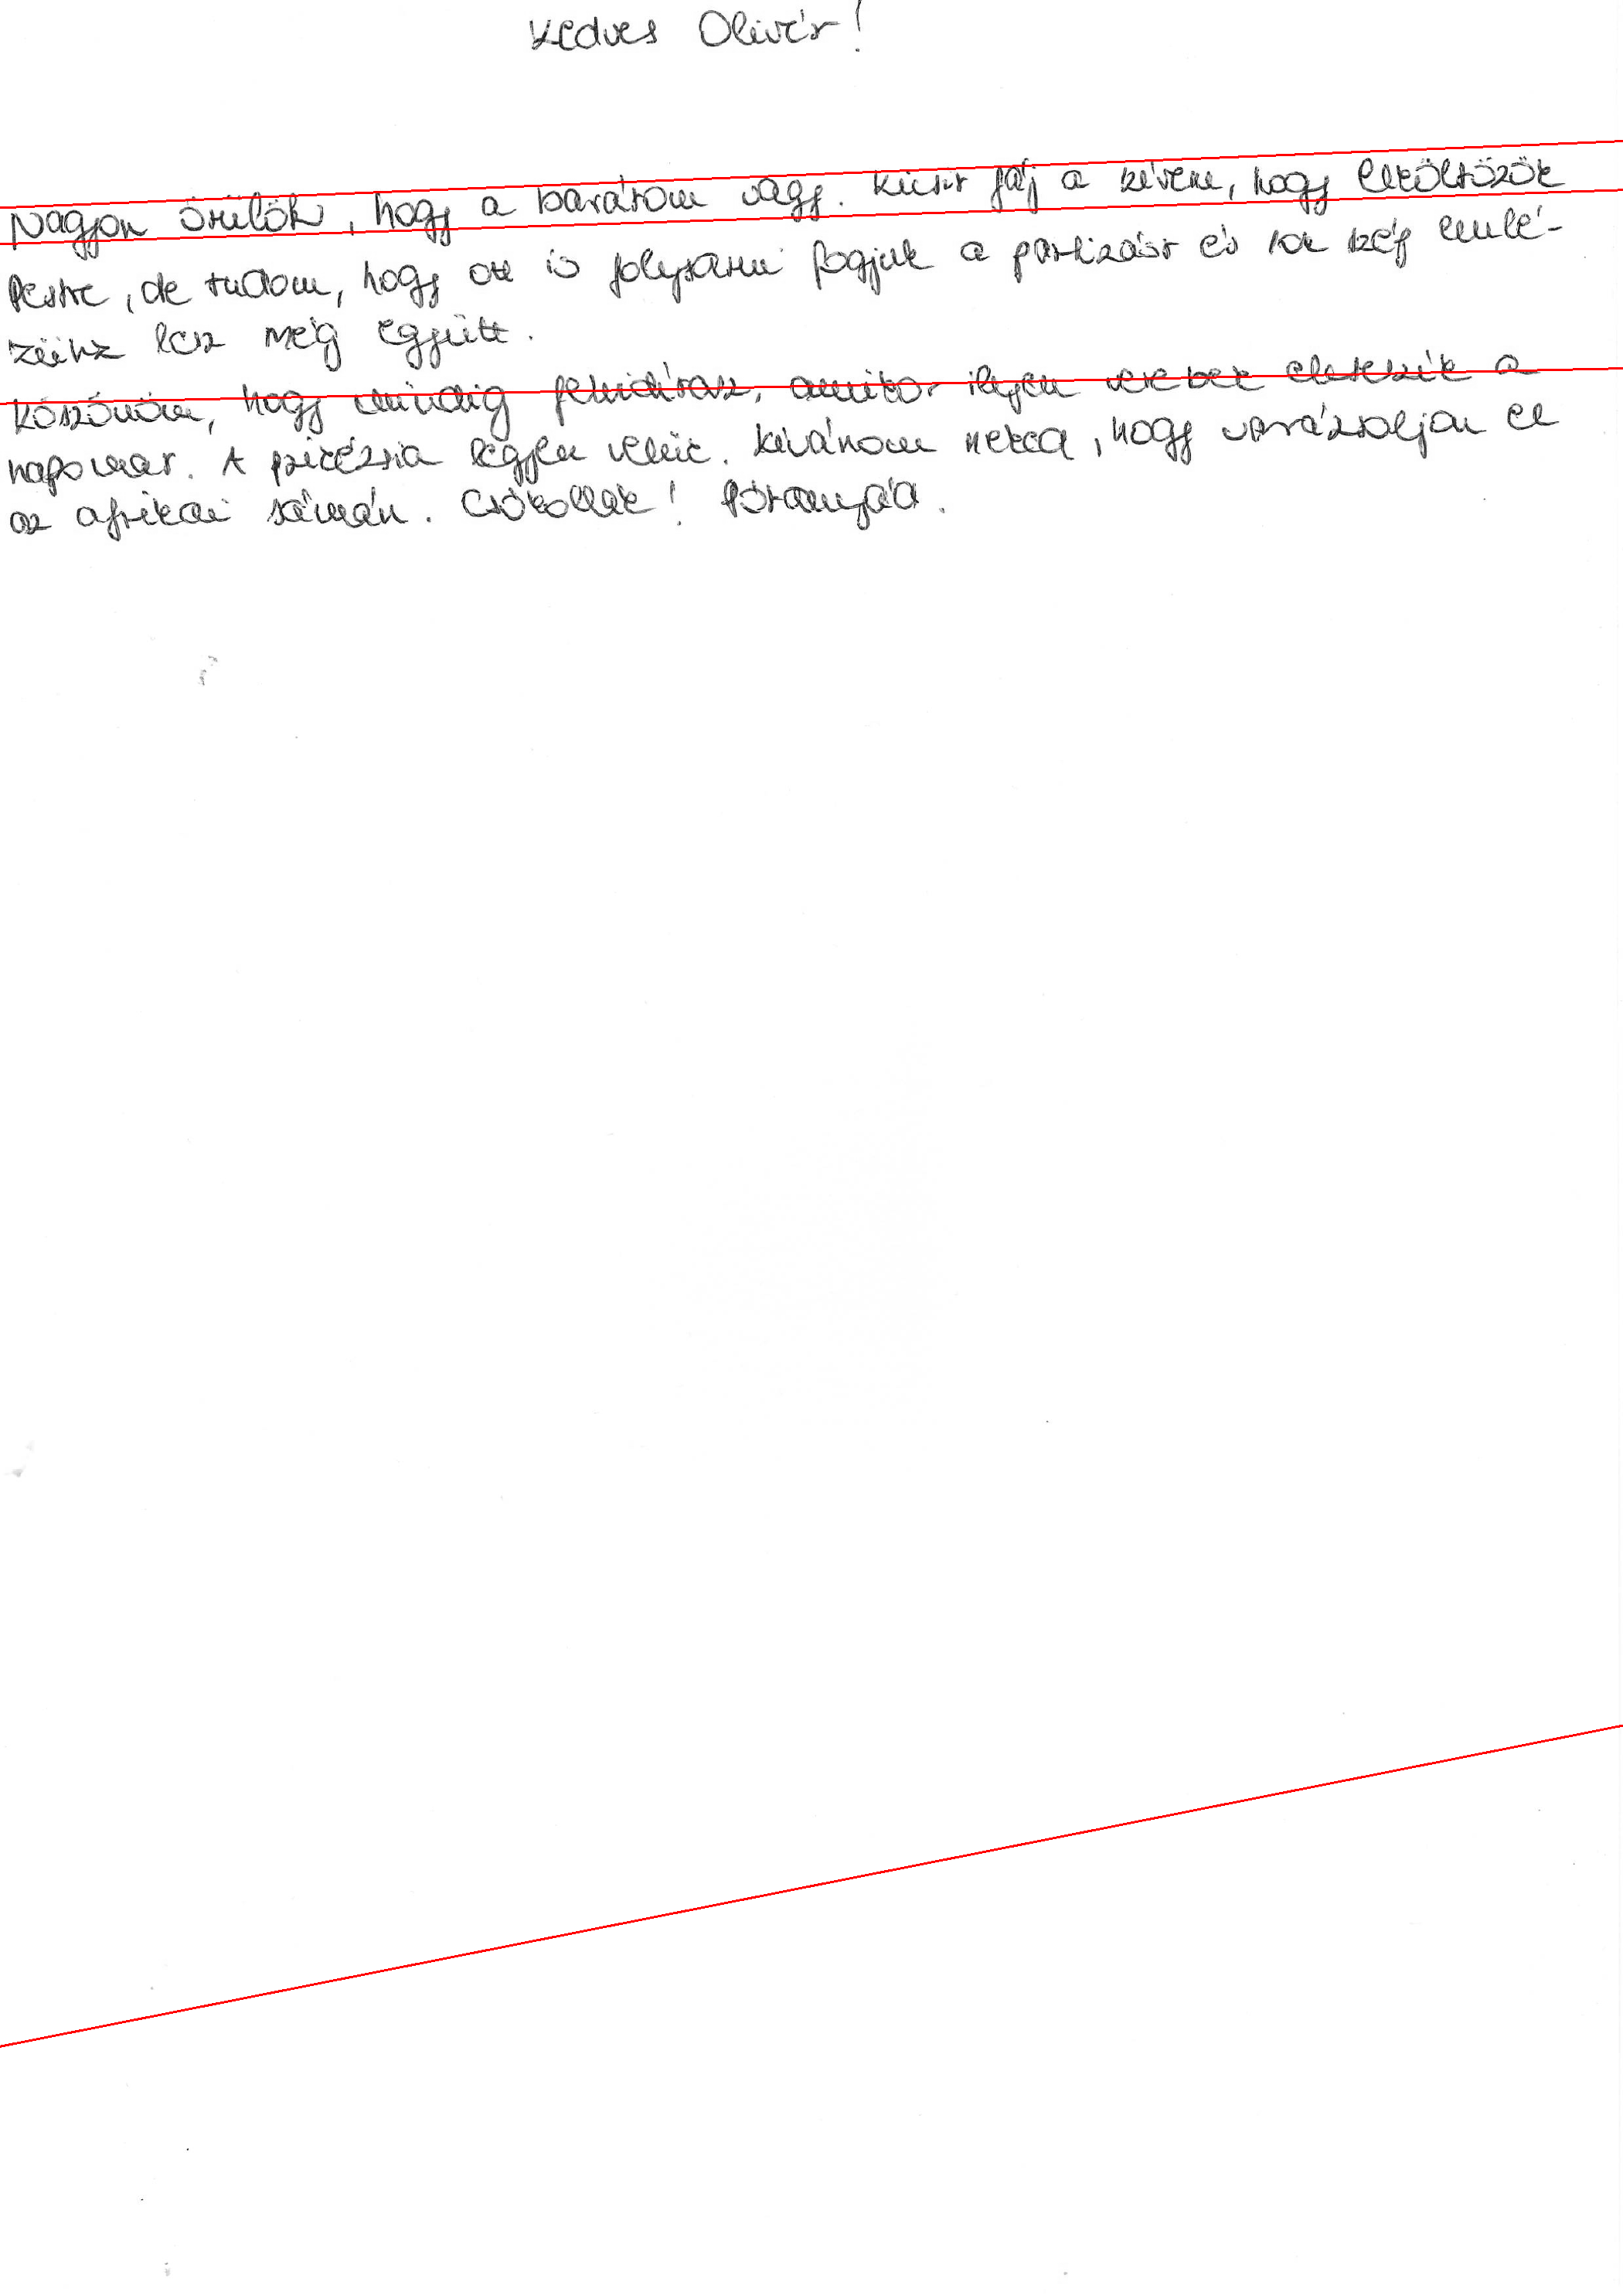 Kedves Olivér!
Nagyon örülök, hogy a barátom vagy. Kicsit fáj a szívem, hogy elköltözök
Pestre, de tudom, hogy ott is folytatni fogjuk a partizást és sok szép emlé-
zünk lesz még együtt.
Köszönöm, hogy mindig felvidítasz, amikor ilyen versek elteszik a
napomat. A pszichézsia legyen velünk. Kívánom neked, hogy varázsoljon el
az afrikai sámán. Csókollak! Pótanyád.